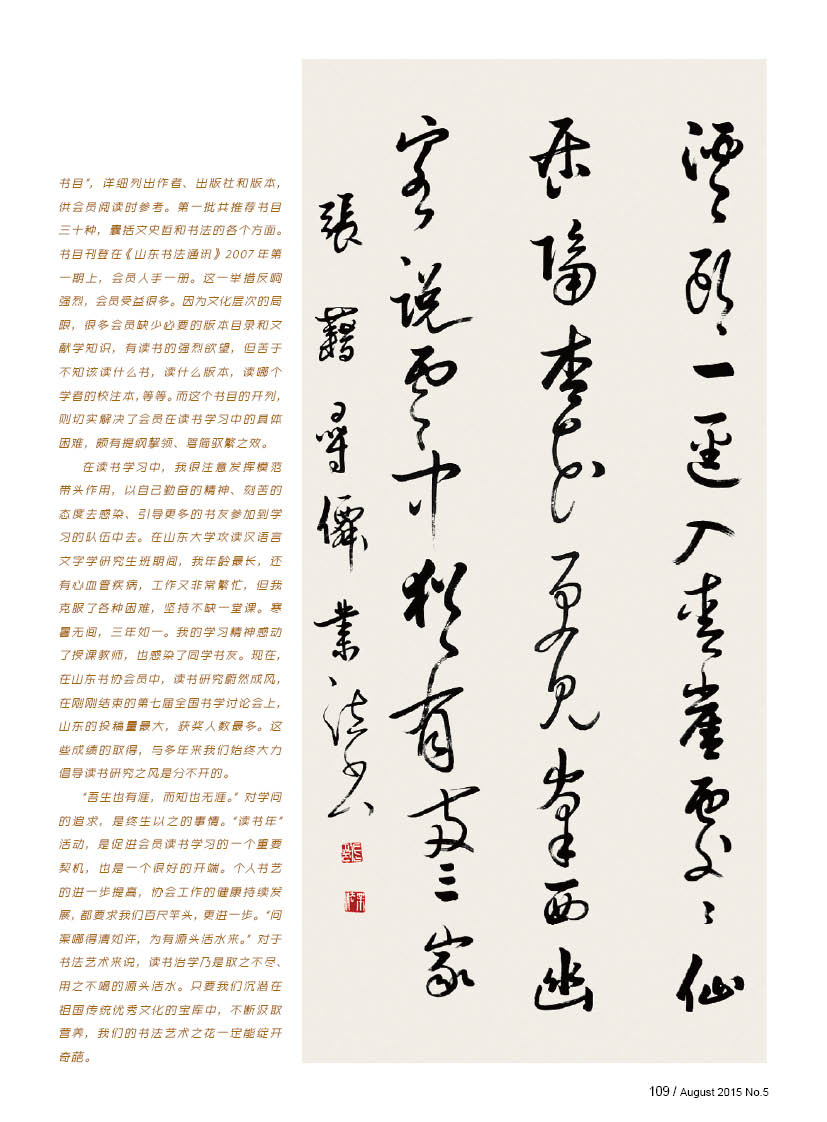 书目”，详细列出作者、出版社和版本，
供会员阅读时参考。第一批共推荐书目
三十种，囊括文史哲和书法的各个方面。
书目刊登在《山东书法通讯》2007 年第
一期上，会员人手一册。这一举措反响
强烈，会员受益很多。因为文化层次的局
限，很多会员缺少必要的版本目录和文
献学知识，有读书的强烈欲望，但苦于
不知该读什么书，读什么版本，读哪个
学者的校注本，等等。而这个书目的开列，
则切实解决了会员在读书学习中的具体
困难，颇有提纲挈领、驾简驭繁之效。
在读书学习中，我很注意发挥模范
带头作用，以自己勤奋的精神、刻苦的
态度去感染、引导更多的书友参加到学
习的队伍中去。在山东大学攻读汉语言
文字学研究生班期间，我年龄最长，还
有心血管疾病，工作又非常繁忙，但我
克服了各种困难，坚持不缺一堂课。寒
暑无间，三年如一。我的学习精神感动
了授课教师，也感染了同学书友。现在，
在山东书协会员中，读书研究蔚然成风，
在刚刚结束的第七届全国书学讨论会上，
山东的投稿量最大，获奖人数最多。这
些成绩的取得，与多年来我们始终大力
倡导读书研究之风是分不开的。
“吾生也有涯，而知也无涯。”对学问
的追求，是终生以之的事情。“读书年”
活动，是促进会员读书学习的一个重要
契机，也是一个很好的开端。个人书艺
的进一步提高，协会工作的健康持续发
展，都要求我们百尺竿头，更进一步。“问
渠哪得清如许，为有源头活水来。”对于
书法艺术来说，读书治学乃是取之不尽、
用之不竭的源头活水。只要我们沉潜在
祖国传统优秀文化的宝库中，不断汲取
营养，我们的书法艺术之花一定能绽开
奇葩。
溪頭一逕入青崖處處仙
居隔杏花更見峯西幽
客說雲中猶有兩三家
張籍尋僊業法書
109 / August 2015 No.5